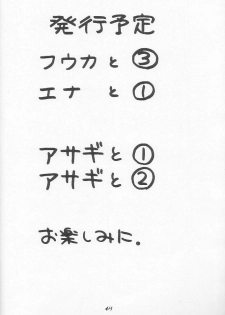 発行予定
フウカと③
エナと①
アサギと①
アサギと②
お楽しみに。